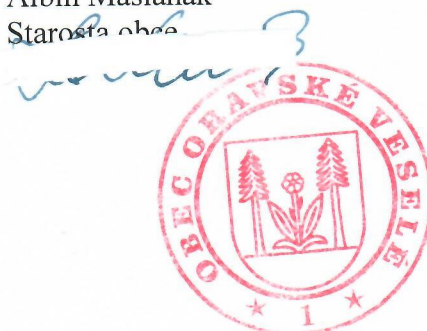 Albín Maslaňák
Starosta obce
OBEC ORAVSKÉ VESELÉ
1